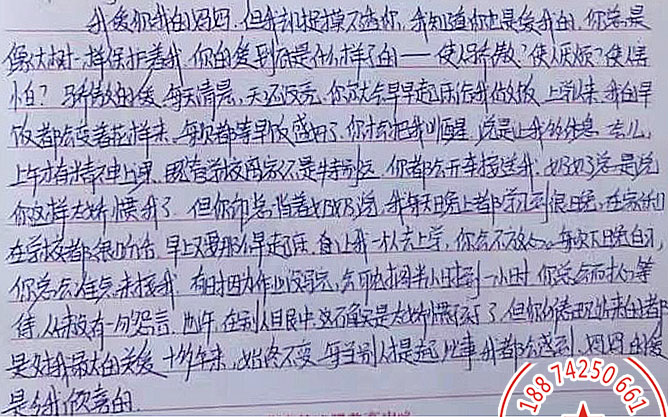 我爱你我的妈妈。但我却捉摸不透你，我知道你也是爱我的。你总是
像大树一样保护着我。你的爱到底是什么样子的——使人骄傲？使人厌烦？使人害
怕？骄傲的爱。每天清晨，天还没亮，你就会早早起床给我做饭。上学以来，我的早
饭都会变着花样来。每次都等早饭盛好了，你才会把我叫醒，说是让我多休息一会儿，
上午才有精神上课。既管学校离家不是特别远，你都会开车接送我。奶奶总是说
你这样太娇惯我了。但你却总背着奶奶说，我每天晚上都学习到很晚，在家的
在学校都很吃苦，早上又要那么早起床，自让我一人去上学，你会不放心。每次下晚自习，
你总会准点来接我。有时因为作业没写完，会耽搁半小时到一小时，你总会耐心等
待，从来没有一句怨言。也许，在别人眼中，这确实是太娇惯孩子了。但你的表现给我的都
是对我最大的关爱。十几年来，始终不变。每当别人提起此事我都会感到，妈妈的爱
是令我欣喜的。
18874250661